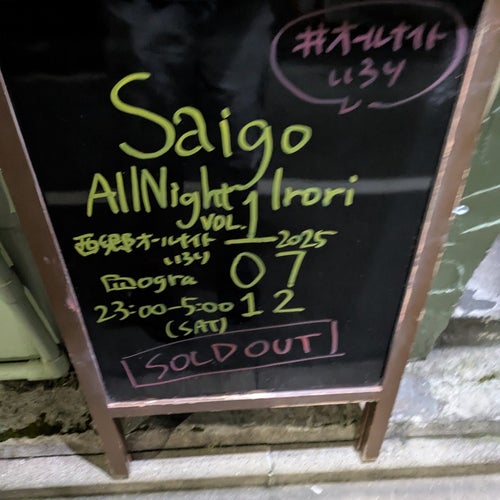 #オールナイト
いろり
Saigo
AllNight Irori
VOL.1
西郷オールナイト
いろり
2025
07
12
@mogra
23:00-5:00
(SAT)
SOLD OUT